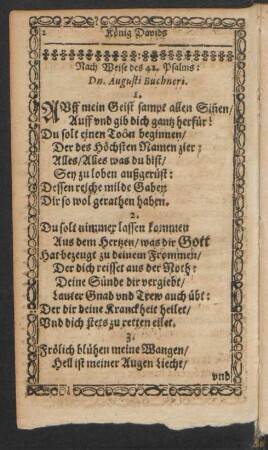 2 König Davids
Nach Weise des 42. Psalms:
Dn. Augusti Buchneri.
1.
AUff mein Geist sampt allen Siñen/
Auff vnd gib dich gantz herfür!
Du solt einen Tohn beginnen/
Der des Höchsten Namen zier;
Alles/Alles was du bist/
Sey zu loben außgerüst:
Dessen reiche milde Gaben
Dir so wol gerathen haben.
2.
Du solt nimmer lassen kommen
Aus dem Hertzen/was dir Gott
Hat bezeugt zu deinem Frommen/
Der dich reisset aus der Noth:
Deine Sünde dir vergiebt/
Lauter Gnad vnd Trew auch übt:
Der dir deine Kranckheit heilet/
Vnd dich stets zu retten eilet.
3.
Frölich blühen meine Wangen/
Hell ist meiner Augen Liecht/
vnd